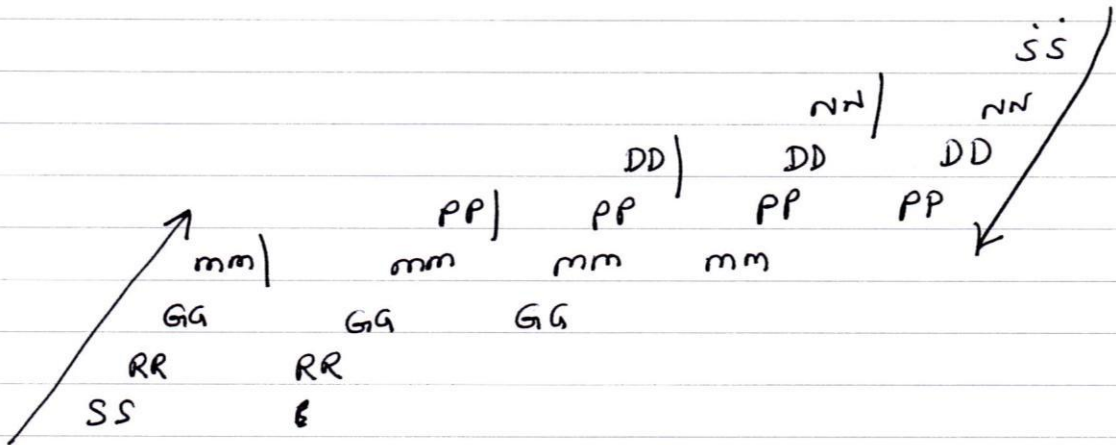 ṠṠ
NN| NN
DD| DD DD
PP| PP PP PP
mm| mm mm mm
GG GG GG
RR RR
SS